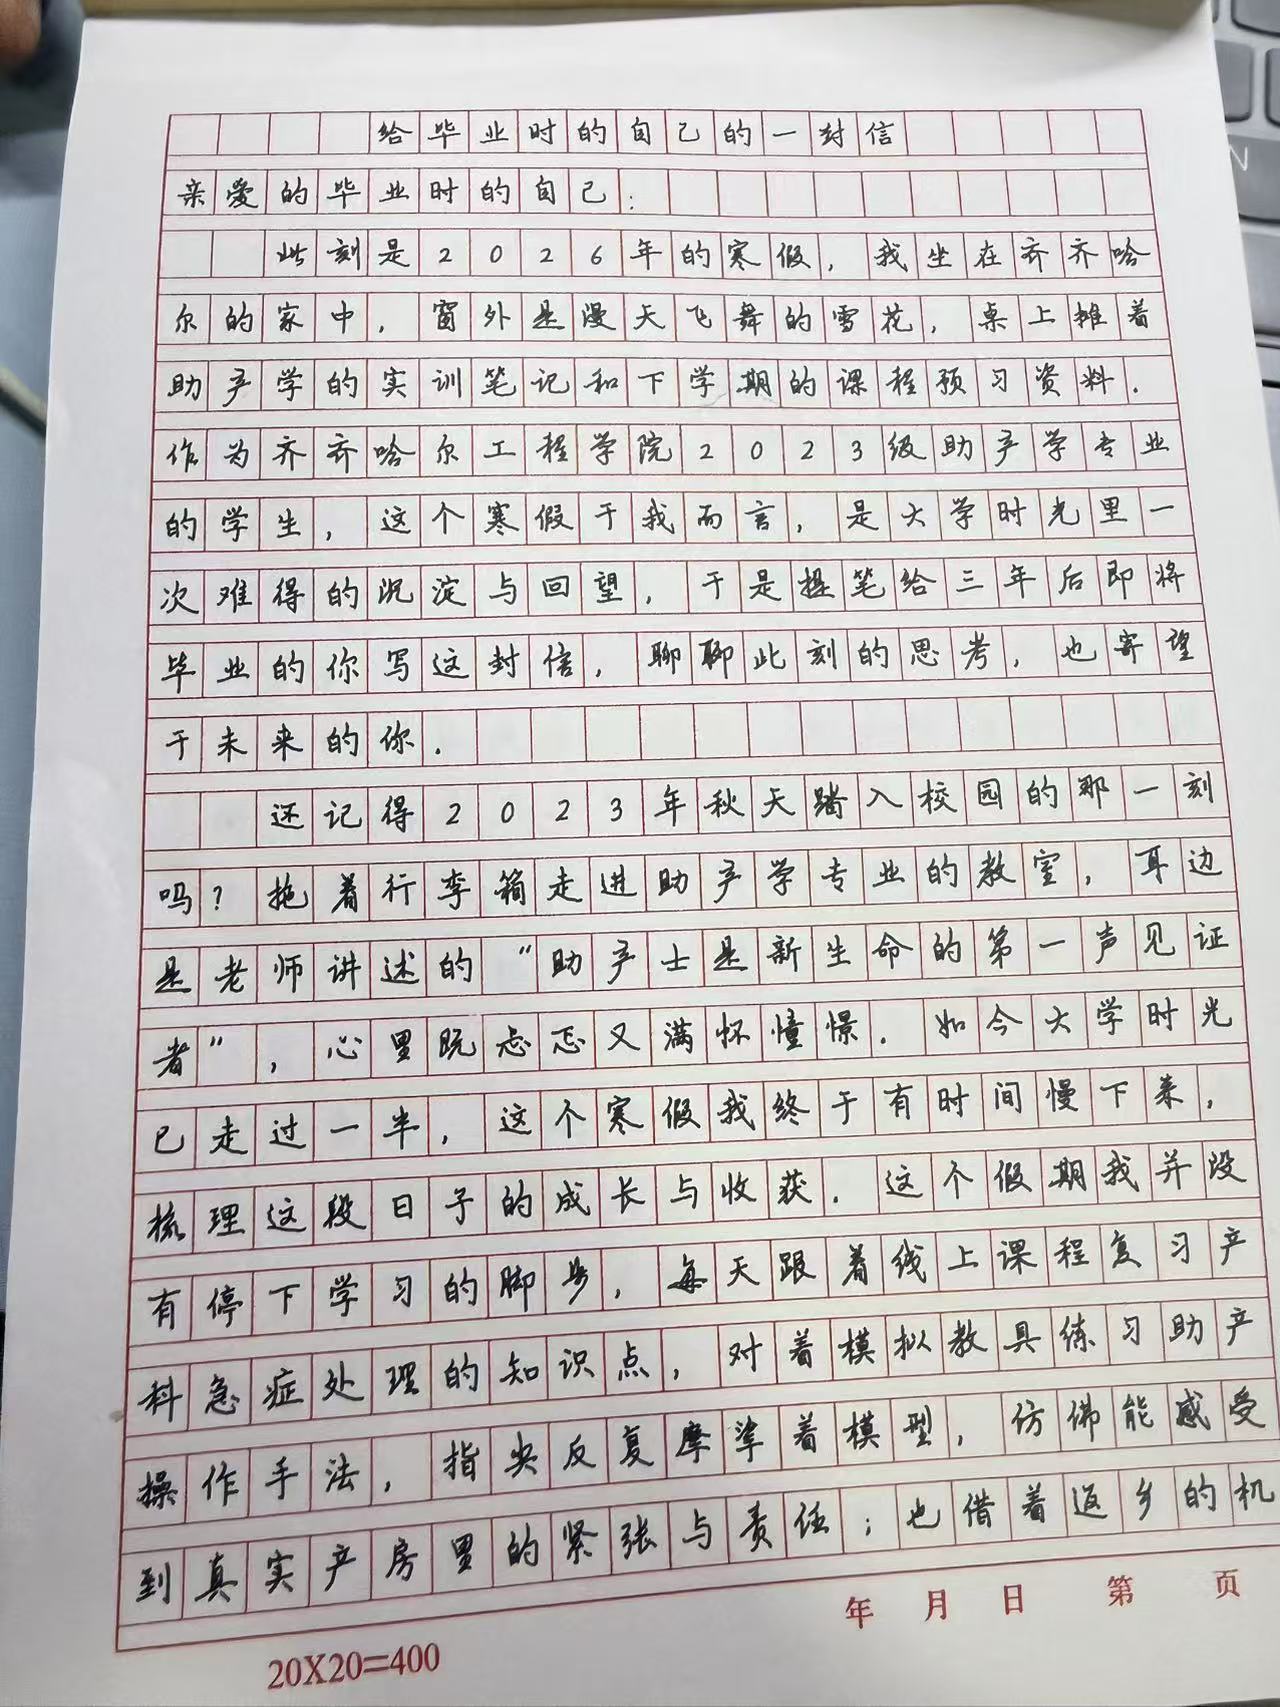 给毕业时的自己的一封信
亲爱的毕业时的自己：
此刻是2026年的寒假，我坐在齐齐哈
尔的家中，窗外是漫天飞舞的雪花，桌上摊着
助产学的实训笔记和下学期的课程预习资料．
作为齐齐哈尔工程学院2023级助产学专业
的学生，这个寒假于我而言，是大学时光里一
次难得的沉淀与回望，于是提笔给三年后即将
毕业的你写这封信，聊聊此刻的思考，也寄望
于未来的你．
还记得2023年秋天踏入校园的那一刻
吗？拖着行李箱走进助产学专业的教室，耳边
是老师讲述的“助产士是新生命的第一声见证
者”，心里既忐忑又满怀憧憬．如今大学时光
已走过一半，这个寒假我终于有时间慢下来，
梳理这段日子的成长与收获．这个假期我并没
有停下学习的脚步，每天跟着线上课程复习产
科急症处理的知识点，对着模拟教具练习助产
操作手法，指尖反复摩挲着模型，仿佛能感受
到真实产房里的紧张与责任；也借着返乡的机
年 月 日 第 页
20X20=400
N